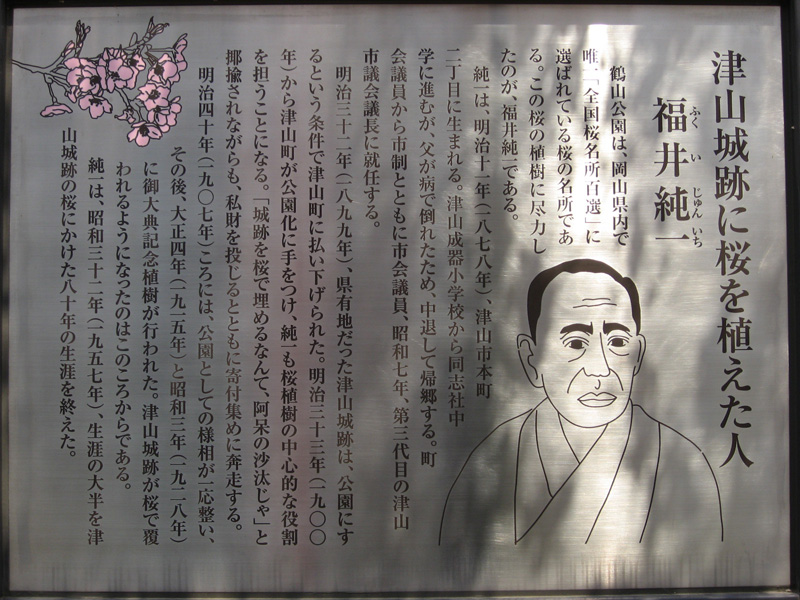 津山城跡に桜を植えた人
福井純一
ふくい じゅんいち
鶴山公園は、岡山県内で
唯一「全国桜名所百選」に
選ばれている桜の名所であ
る。この桜の植樹に尽力し
たのが、福井純一である。
純一は、明治十一年(一八七八年)、津山市本町
二丁目に生まれる。津山成器小学校から同志社中
学に進むが、父が病で倒れたため、中退して帰郷する。町
会議員から市制とともに市会議員、昭和七年、第三代目の津山
市議会議長に就任する。
明治三十二年(一八九九年)、県有地だった津山城跡は、公園にす
るという条件で津山町に払い下げられた。明治三十三年(一九〇〇
年)から津山町が公園化に手をつけ、純一も桜植樹の中心的な役割
を担うことになる。「城跡を桜で埋めるなんて、阿呆の沙汰じゃ」と
揶揄されながらも、私財を投じるとともに寄付集めに奔走する。
明治四十年(一九〇七年)ころには、公園としての様相が一応整い、
その後、大正四年(一九一五年)と昭和三年(一九二八年)
に御大典記念植樹が行われた。津山城跡が桜で覆
われるようになったのはこのころからである。
純一は、昭和三十二年(一九五七年)、生涯の大半を津
山城跡の桜にかけた八十年の生涯を終えた。